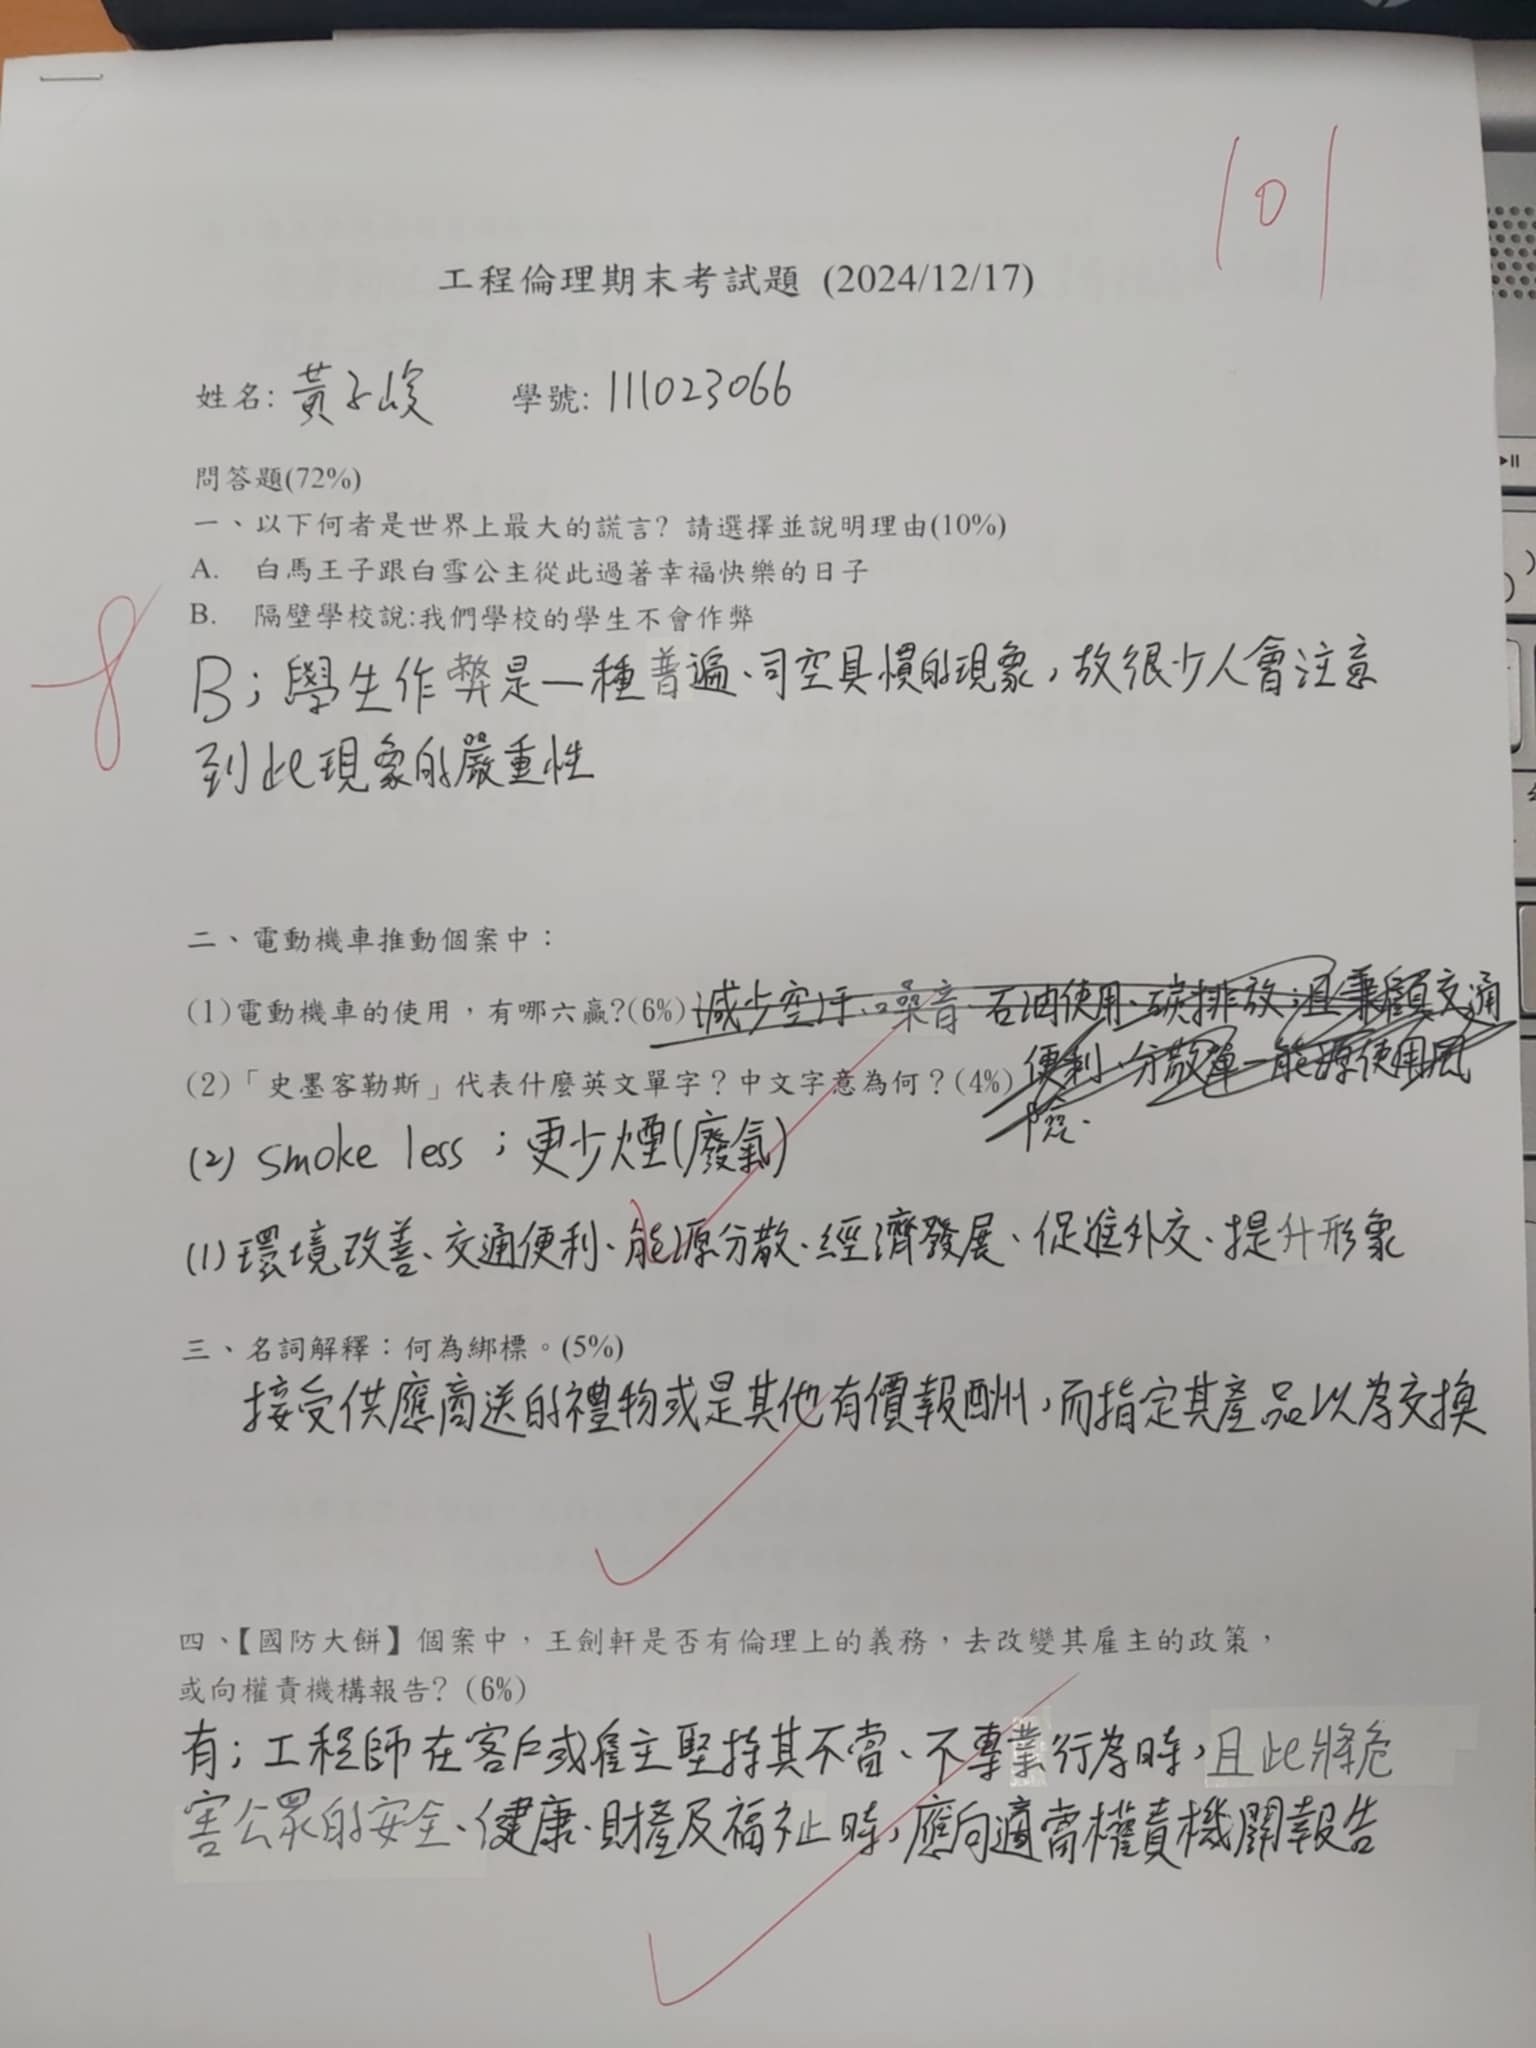 101
工程倫理期末考試題 (2024/12/17)
姓名: 黃子峻 學號: 111023066
問答題(72%)
一、以下何者是世界上最大的謊言? 請選擇並說明理由(10%)
A. 白馬王子跟白雪公主從此過著幸福快樂的日子
B. 隔壁學校說:我們學校的學生不會作弊
8
B；學生作弊是一種普遍、司空見慣的現象，故很少人會注意
到此現象的嚴重性
二、電動機車推動個案中：
(1)電動機車的使用，有哪六贏?(6%) 減少空汙、噪音、石油使用、碳排放；且兼顧交通
(2)「史墨客勒斯」代表什麼英文單字？中文字意為何？(4%) 便利、分散單一能源使用風
險.
(2) smoke less；更少煙(廢氣)
(1) 環境改善、交通便利、能源分散、經濟發展、促進外交、提升形象
三、名詞解釋：何為綁標。(5%)
接受供應商送的禮物或是其他有價報酬，而指定其產品以為交換
四、【國防大餅】個案中，王劍軒是否有倫理上的義務，去改變其雇主的政策，
或向權責機構報告? (6%)
有；工程師在客戶或雇主堅持其不當、不專業行為時，且此將危
害公眾的安全、健康、財產及福祉時，應向適當權責機關報告